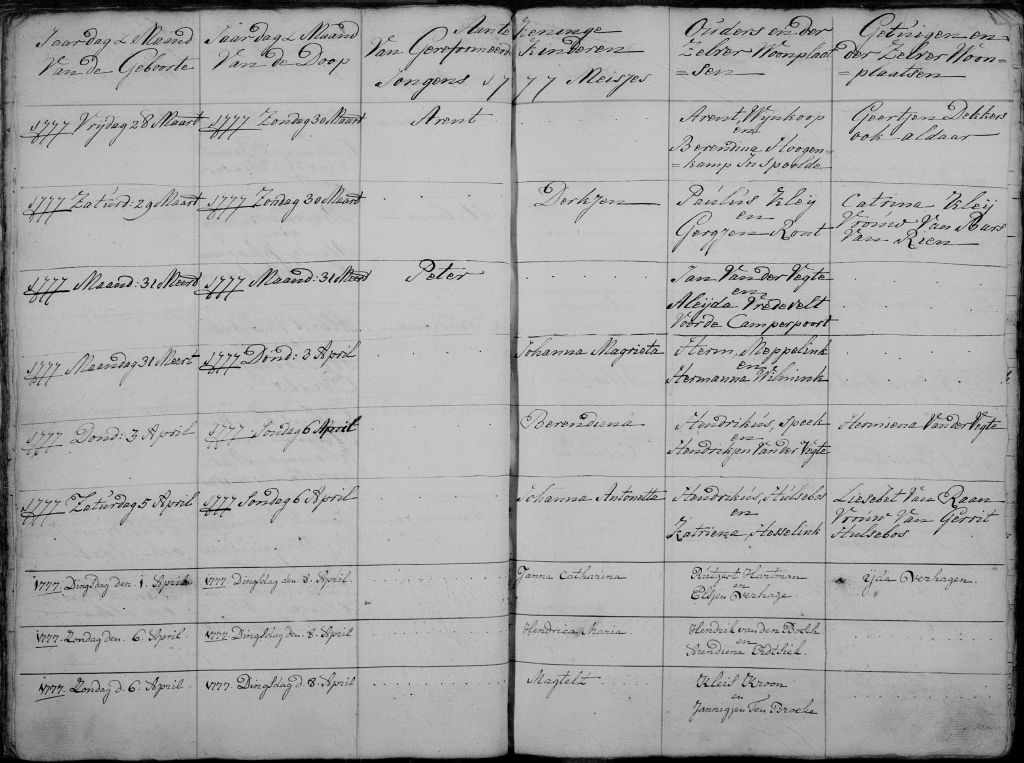 Jaardag & Maand Van de Geboorte
Jaardag & Maand Van de Doop
Aante keninge
Van Gereformeerde Kinderen
Jongens 1777 Meisjes
Ouders in der Zelver Woonplaat=sen
Getuigen en der Zelver Woon=plaatsen
1777 Vrijdag 28 Maart
1777 Zondag 30 Maart
Arent
Arent, Wijnkoop
en
Berendina Hoogen=kamp In Spoolde
Geertjen Dekkers
ook aldaar
1777 Zaturd: 29 Maart
1777 Zondag 30 Maart
Derkjen
Paulus Kleij
en
Gergjen Ront
Catrina Kleij
Vrouw Van
Van Rien
1777 Maand: 31 Meert
1777 Maand: 31 Meert
Peter
Jan Van der Vegte
en
Aleijda Vredevelt
Voorde Camperpoort
1777 Maandag 31 Meert
1777 Dond: 3 April
Johanna Magrieta
Herm, Meppelink
en
Hermanna Wilmink
1777 Dond: 3 April
1777 Sondag 6 April
Berendiena
Hendrikus, Speek
en
Hendrikjen Van der Vegte
Hermiena Van der Vegte
1777 Zaturdag 5 April
1777 Sondag 6 April
Johanna Antonetta
Hendrikus, Hulsebos
en
Katriena, Hesselink
Liesebet Van Raan
Vrouw Van Gerrit
Hulsebos
1777. Dingsdag den. 1. April
1777. Dingsdag den. 8. April
Janna Catharina
Rutgert Hartman
en
Elsjen Verhage
Yda Verhagen.
1777. Zondag den. 6. April
1777. Dingsdag den. 8. April
Hendrica Maria
Hendrik van den Bosch
en
1777. Zondag d. 6. April
1777. Dingsdag d. 8. April
Magtelt
Kleis Kroon
en
Jannigjen Ten Broeke